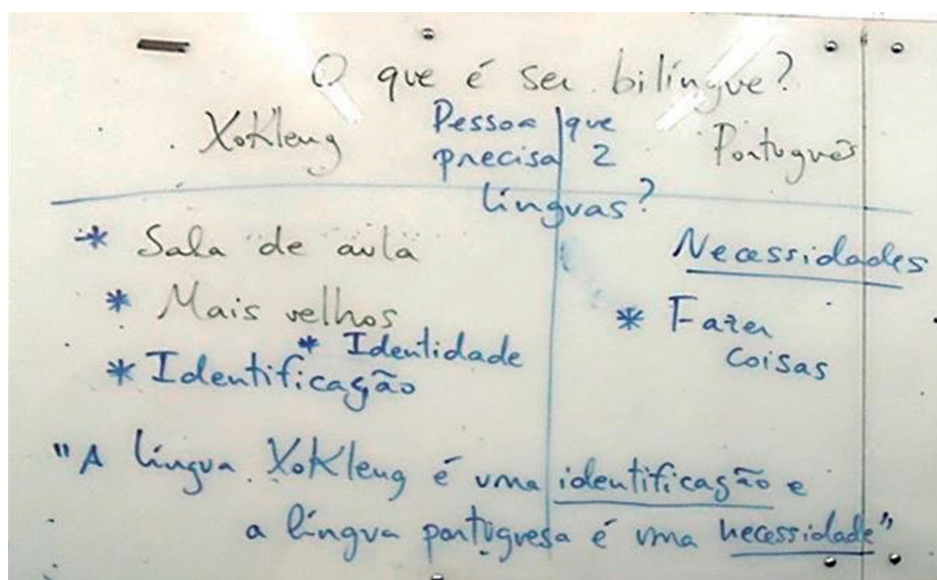 O que é ser bilíngue?
Xokleng
Pessoa que
precisa 2
línguas?
Português
* Sala de aula
* Mais velhos
* Identidade
* Identificação
Necessidades
* Fazer
coisas
"A língua Xokleng é uma identificação e
a língua portuguesa é uma necessidade"